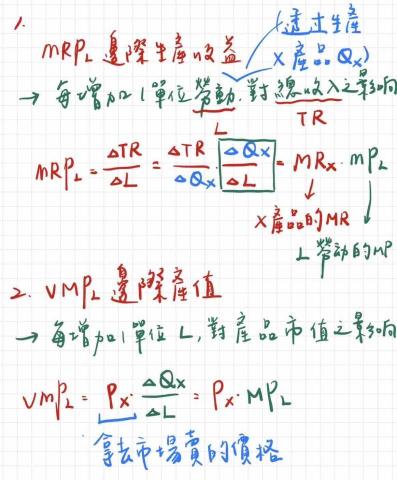 1.
(透过生產
X產品Qx)
MRPL 邊際生產收益
→ 每增加1單位勞動,對總收入之影响
L TR
MRPL = ΔTR/ΔL = ΔTR/ΔQx · ΔQx/ΔL = MRx · MPL
↓ ↓
X產品的MR
L勞动的MP
2. VMPL 邊際產值
→ 每增加1單位L,對產品市值之影响
VMPL = Px · ΔQx/ΔL = Px · MPL
拿去市場賣的價格